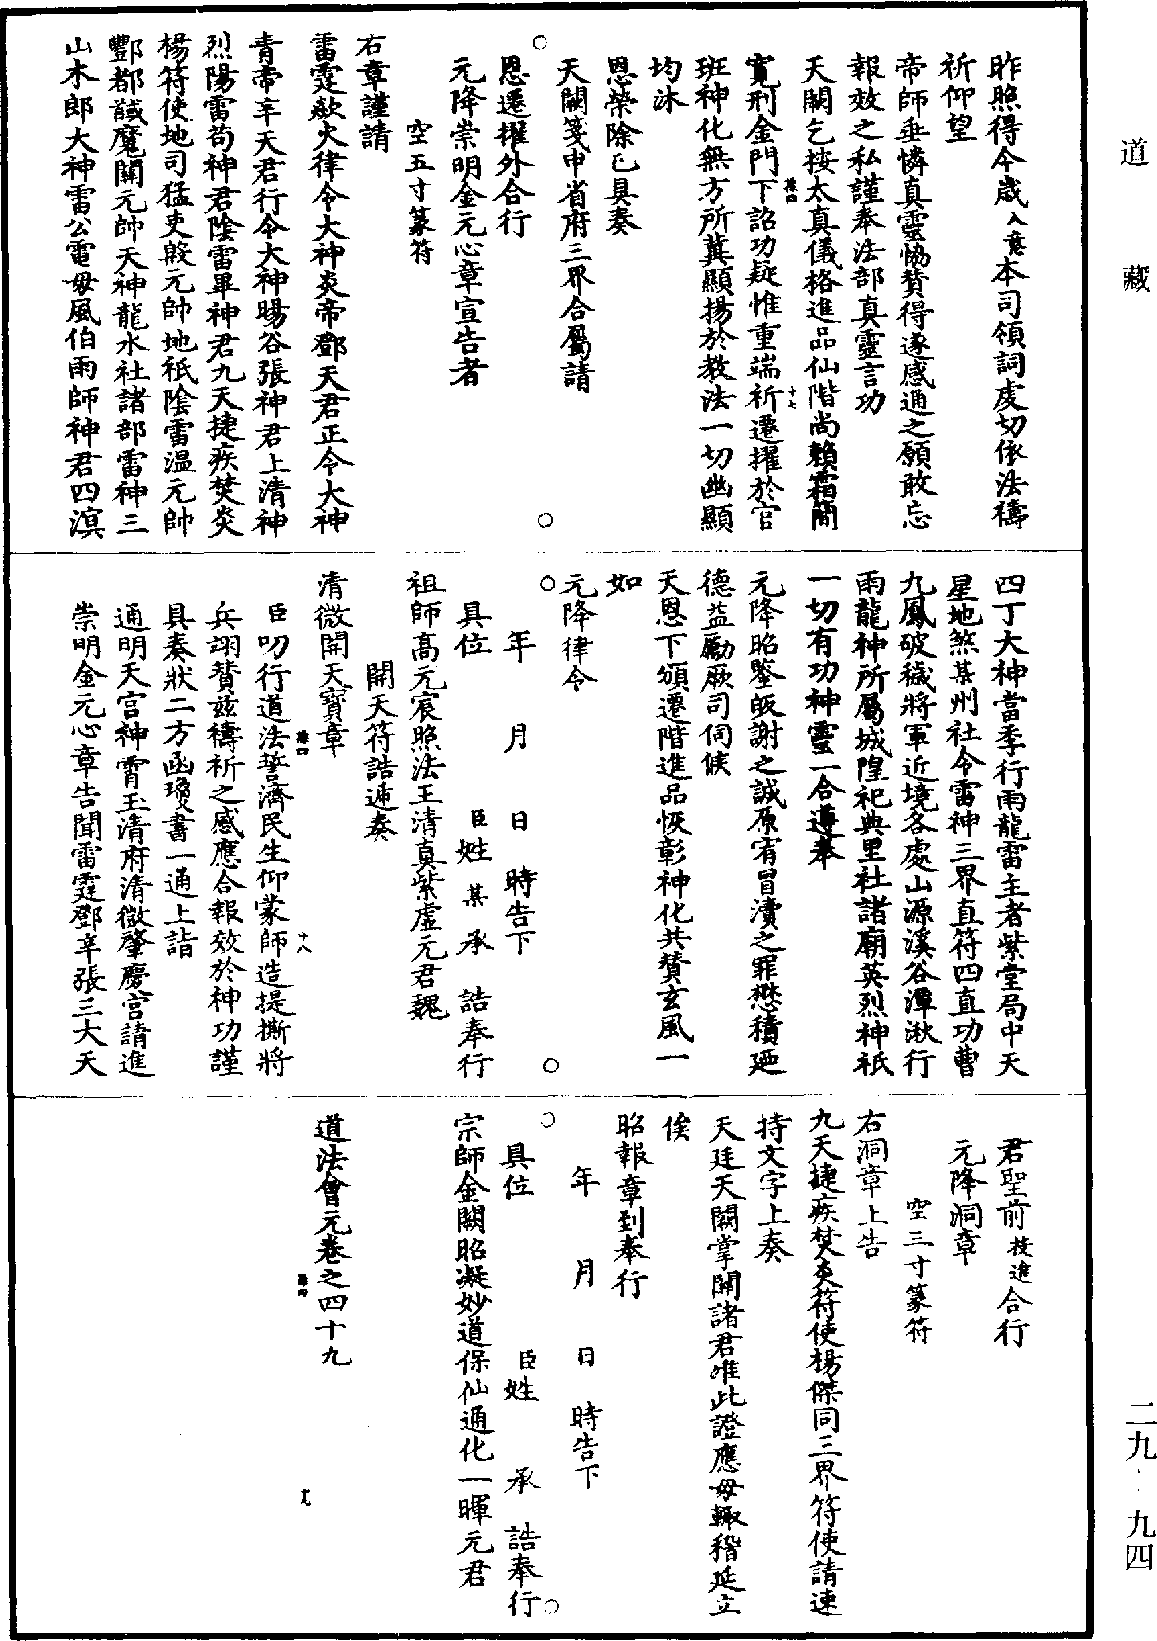 道藏
昨照得今歲入意本司領詞虔切依法禱
祈仰望
帝師垂憐真靈恊贊得遂感通之願敢忘
報效之私謹奉法部真靈言功
天闕乞按太真儀格進品仙階尚賴霜簡
寬刑金門下詔功疑惟重端祈遷擢於官
班神化無方所冀顯揚於教法一切幽顯
均沐
恩榮除已具奏
天闕箋申省府三界合屬請
恩遷擢外合行
元降崇明金元心章宣告者
空五寸篆符
右章謹請
雷霆歘火律令大神炎帝鄧天君正令大神
青帝辛天君行令大神暘谷張神君上清神
烈陽雷茍神君陰雷畢神君九天捷疾焚炎
楊符使地司猛吏殷元帥地祇陰雷溫元帥
酆都馘魔關元帥天神龍水社諸部雷神三
山木郎大神雷公電母風伯雨師神君四溟
四丁大神當季行雨龍雷主者紫堂局中天
星地煞某州社令雷神三界直符四直功曹
九鳳破穢將軍近境各處山源溪谷潭湫行
雨龍神所屬城隍祀典里社諸廟英烈神祇
一切有功神靈一合遵奉
元降昭鑒皈謝之誠原宥冒瀆之罪懋積廼
德益勵厥司伺候
天恩下頒遷階進品恢彰神化共贊玄風一
如
元降律令
年 月 日 時告下
具位 臣姓 某 承 誥奉行
祖師高元宸照法王清真紫虛元君魏
開天符誥遞奏
清微開天寶章
臣叨行道法誓濟民生仰蒙師造提撕將
兵翊贊兹禱祈之感應合報效於神功謹
具奏狀二方函瓊書一通上詣
通明天宮神霄玉清府清微肇慶宮請進
崇明金元心章告聞雷霆鄧辛張三大天
君聖前投進合行
元降洞章
空三寸篆符
右洞章上告
九天捷疾焚炎符使楊傑同三界符使請速
持文字上奏
天廷天闕掌闕諸君唯此證應毋輙稽延立
俟
昭報章到奉行
年 月 日 時告下
具位 臣姓 承 誥奉行
宗師金闕昭凝妙道保仙通化一暉元君
道法會元卷之四十九
十七
十八
二九·九四